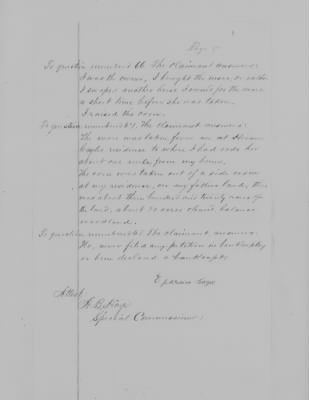 Page 5
To question numbered 66 The claimant answers
I was the owner, I bought the mare, or rather
I swaped another horse I owned for the mare
a short time before she was taken.
I raised the corn.
To question numbered 67. The claimant answers:
The mare was taken from me at
residence to where I had rode her
about one mile from my home.
The corn was taken out of a side room
at my residence, on my fathers land, there
was about three hundred and twenty acres of
the land, about 70 acres cleared balance
woodland.
To question numbered 68 The claimant answers:
No, never filed any petition in bankruptcy
or been declared a bankrupt.
Attest
Special Commissioner